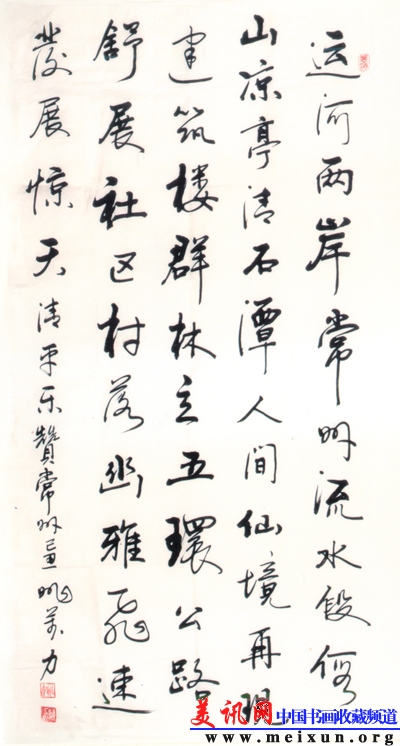 运河两岸常州流水段假
山凉亭清石潭人间仙境再现
建筑楼群林立五環公路
舒展社区村落幽雅飞速
發展惊天清平乐贊常州己丑姚萬力
美讯网 中国书画收藏频道
www.meixun.org